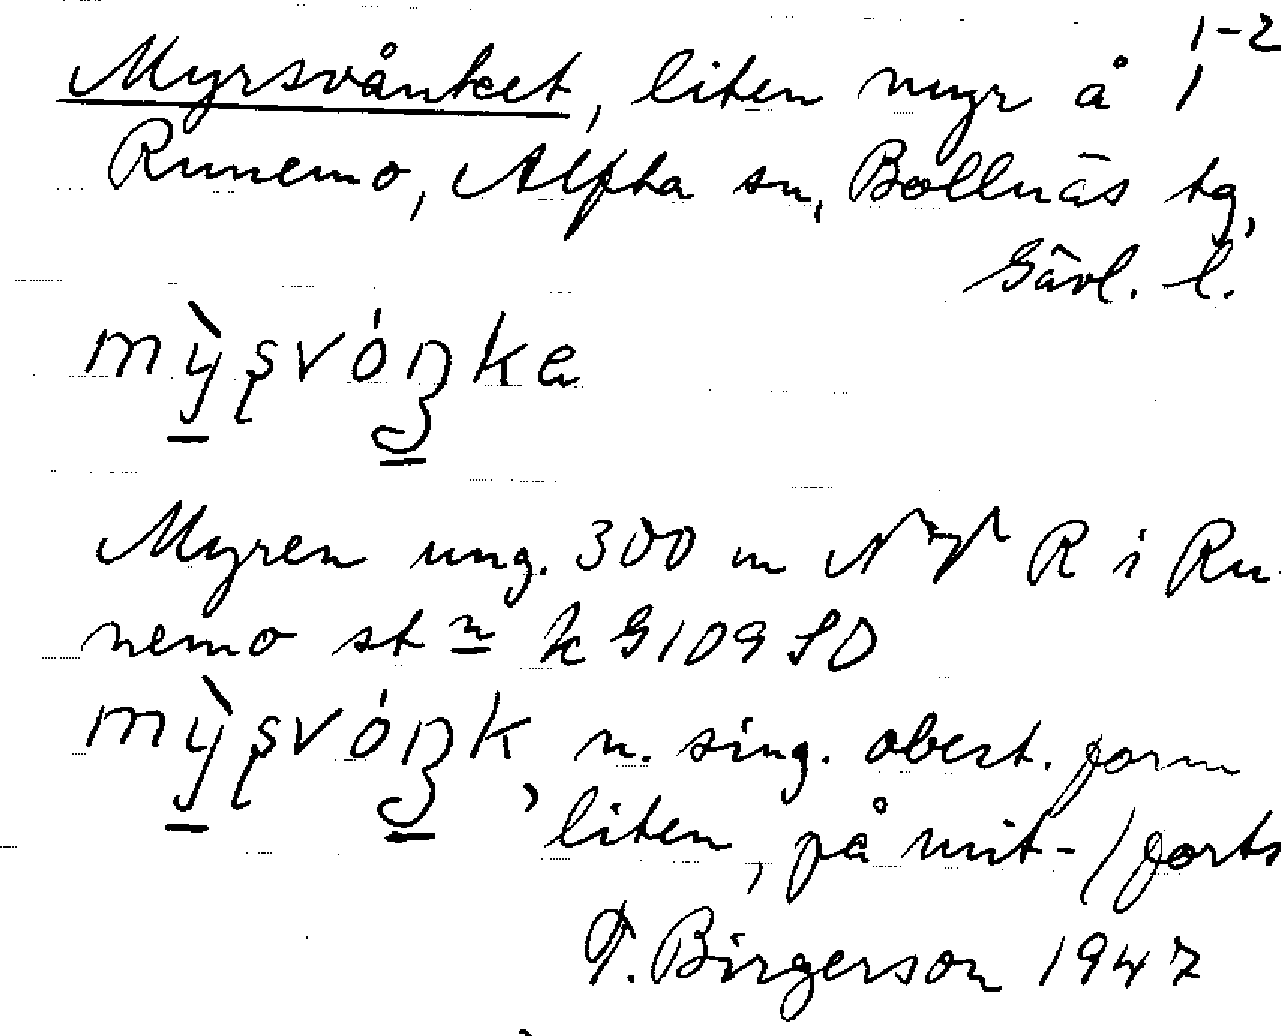 1-2
Myrsvånket, liten myr å 1
Runemo, Alfta sn, Bollnäs tg,
Gävl. l.
Myren ung. 300 m R i Ru-
nemo st k G 109 SO
n. sing. obest. form
liten, på mit- / forts
T. Birgerson 1947